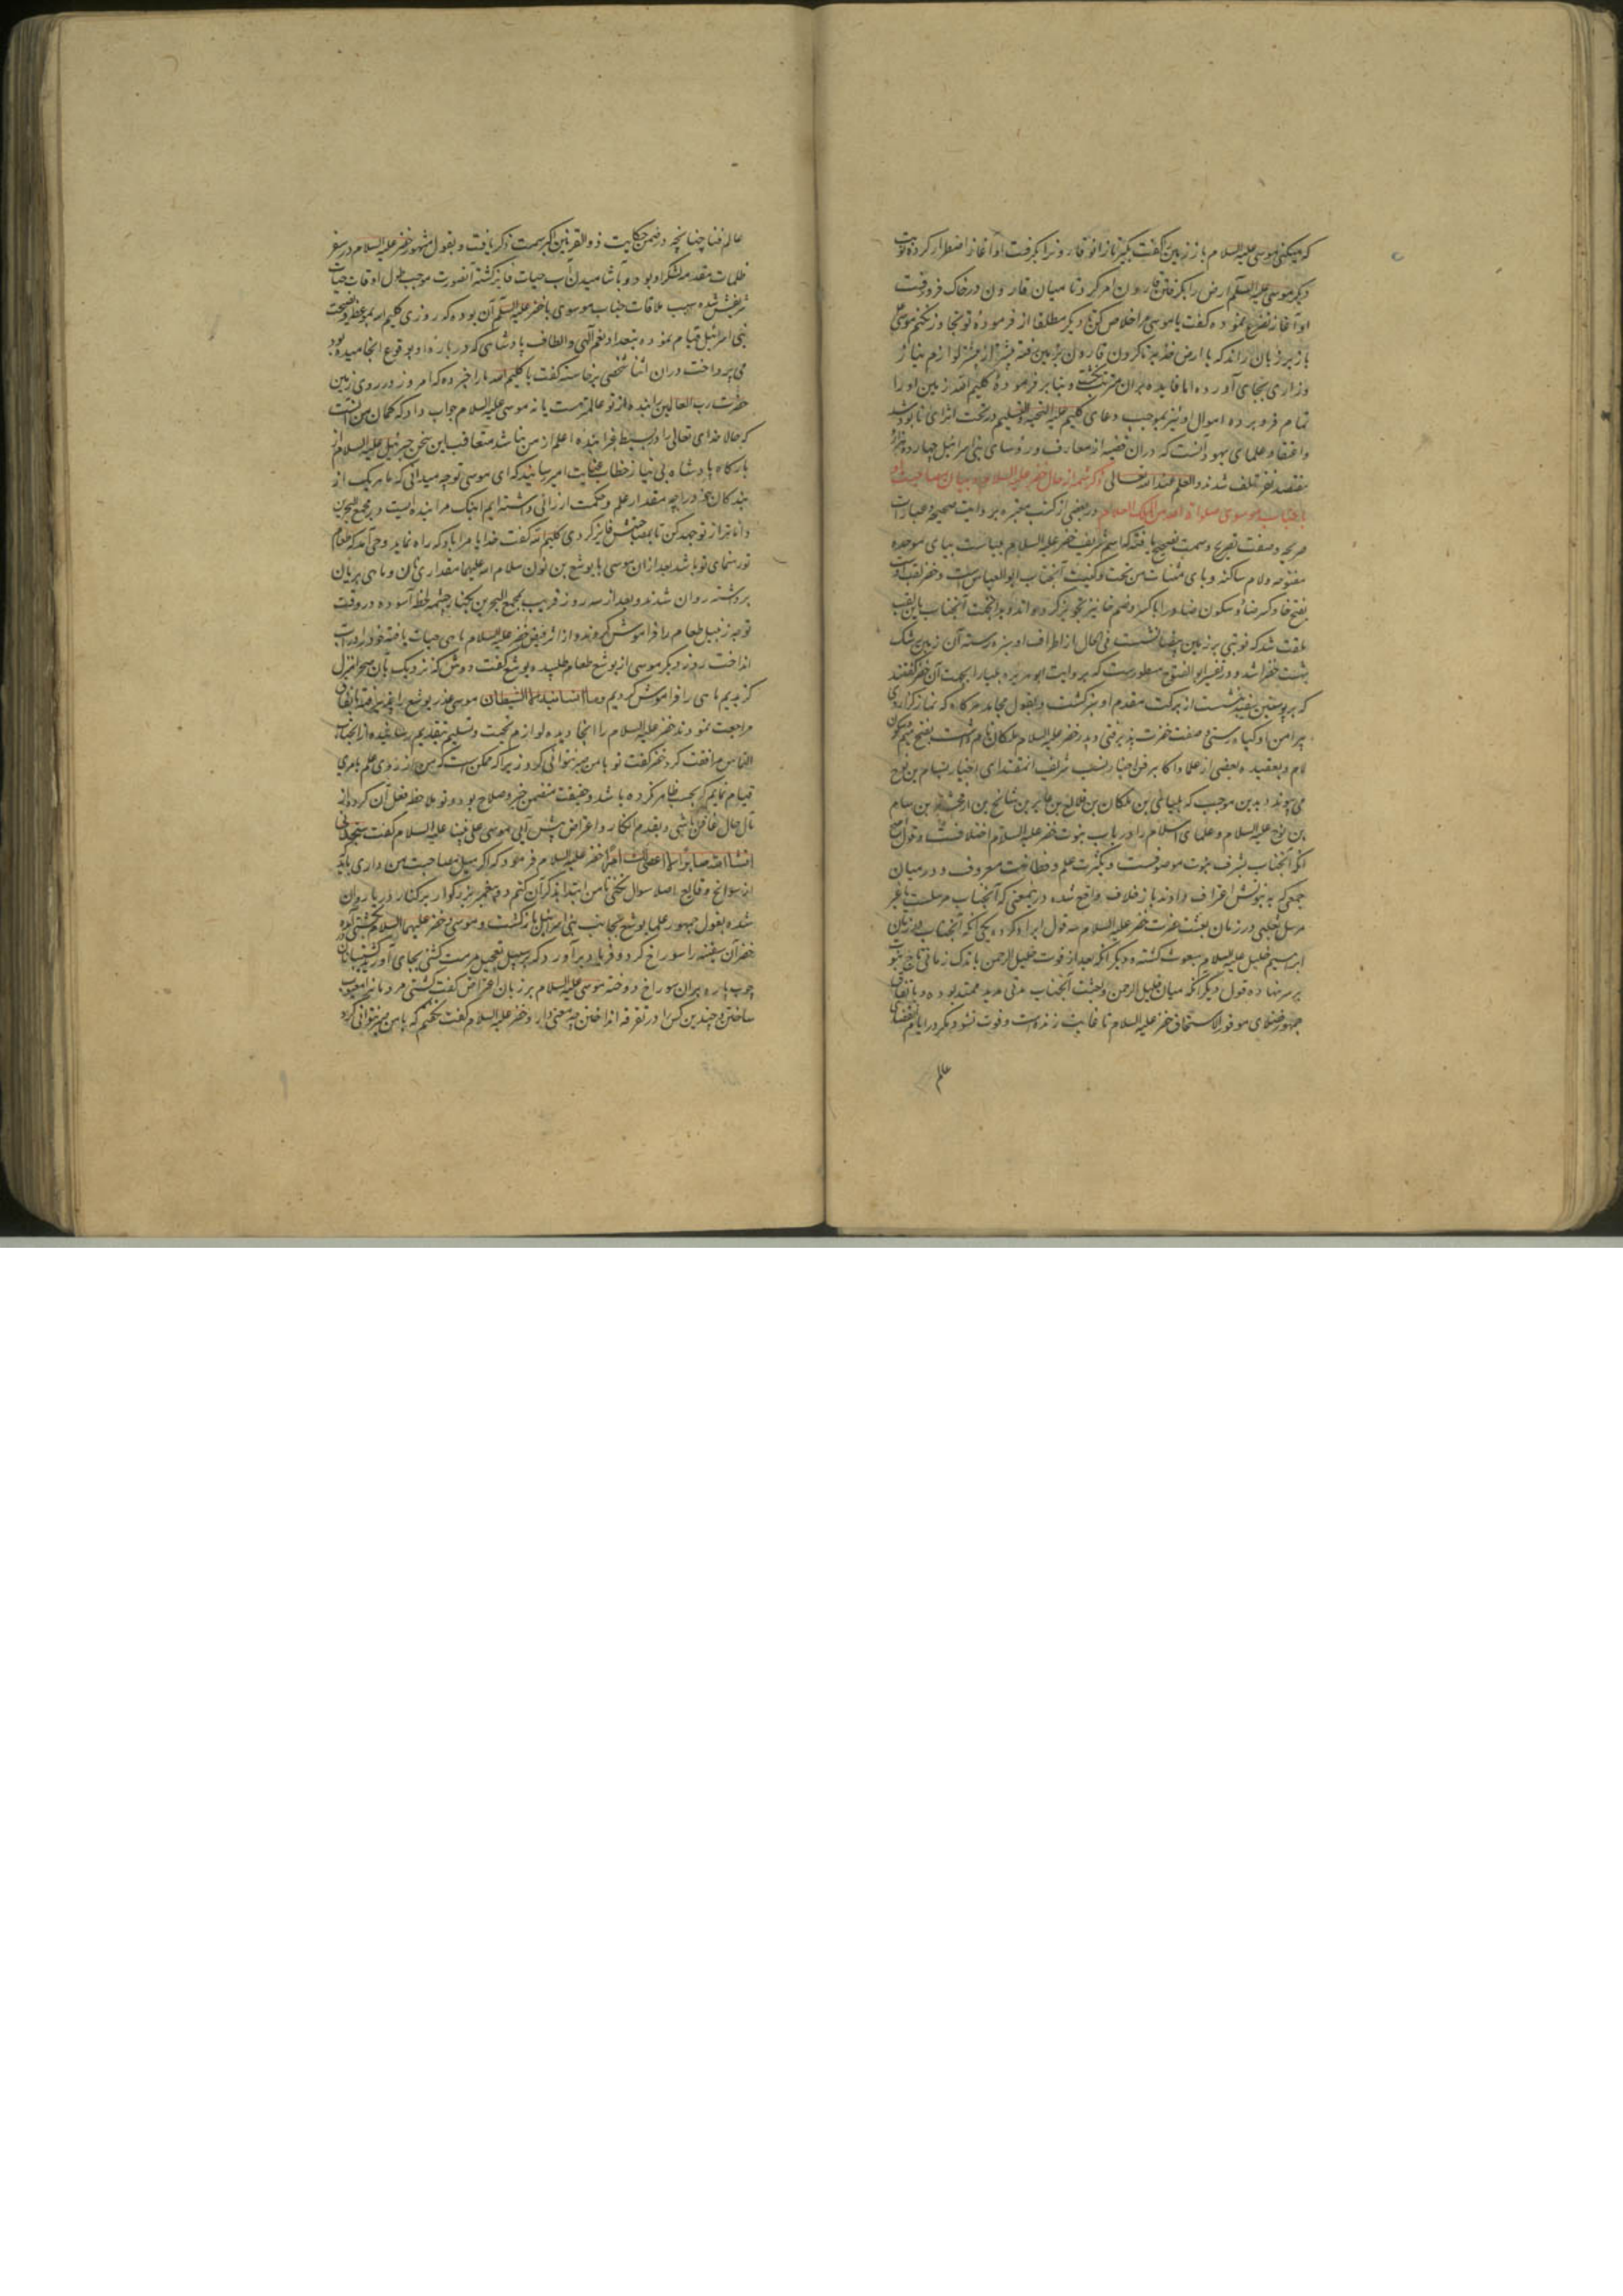 که میکنی موسی علیه السلام باز زمین گفت بگیر تا زانو قارونرا بگرفت او آغاز اضطراب کرده نوبت
دیگر موسی علیه السلم ارض را بگرفتن قارون امر کرد و تا میان قارون در خاک فرو رفت
او آغاز تضرع نموده گفت یا موسی مرا خلاص کن که دیگر مطلقا از فرموده تو تجاوز نکنم موسی علی
باز بر زبان راند که یا ارض خذیه تا گردن قارون بزمین رفته بیشتر از پیشتر لوازم نیاز
وزاری بجای آورده اما فایده بران مترتب نگشت و بنا بر فرموده کلیم الله زمین او را
تمام فرو برده اموال و نیز بموجب دعای کلیم علیه التحیه والتسلیم در تحت الثرای نابود شد
واعتقاد علمای یهود آنست که دران قضیه از معارف و روسای بنی اسرائیل چهارده هزار
هفتصد نفر تلف شدند والعلم عند الله تعالی ذکر شمه از حال خضر علیه السلام و بیان مصاحبت او
با جناب موسوی صلوات الله من الملک العلام در بعضی از کتب معتبره بروایت صحیحه و عبارات
صریحه وصفت تصریح و سمت تصحیح یافته که اسم شریف خضر علیه السلام بلیاست ببای موحده
مفتوحه و لام ساکنه و یای مثنات من تحت و کنیت آنجناب ابو العباس است و خضر لقب اوست
بفتح خا و کسر ضاد و سکون ضاد و را با کسر و ضم خا نیز تجویز کرده اند و بدانجهت آنجناب باین لقب
ملقب شد که نوبتی بر زمین بیضا نشست فی الحال از اطراف او سبزه رسته آن زمین رشک
بهشت خضرا شد و در تفسیر ابو الفتوح مسطورست که بروایت ابو هریره بلیا را بجهت آن خضر گفتند
که بر پوستین سفید نشست از برکت مقدم او سبز گشت و بقول مجاهد هر گاه که نماز گزاردی
پیرامن او گیاه رستی و صفت خضرت پذیرفتی و پدر خضر علیه السلام ملکان نام داشت بفتح میم و سکون
لام و بعقیده بعضی از علما و اکابر فن اخبار نسب شریف آنمقتدای اخیار بسام بن نوح
می پیوندد بدین موجب که بلیا بن ملکان بن فالغ بن عابر بن شالخ بن ارفخشد بن سام
بن نوح علیه السلام و علمای اسلام را در باب نبوت خضر علیه السلام اختلافست و قول اصح
آنکه آنجناب بشرف نبوت موصوفست و بکثرت علم و فطانت معروف و در میان
جمعی که به نبوتش اعتراف دارند باز خلاف واقع شده درینمعنی که آنجناب مرسلست یا غیر
مرسل ثعلبی در زمان بعثت حضرت خضر علیه السلام سه قول ایراد کرده یکی آنکه آنجناب در زمان
ابرهیم خلیل علیه السلام مبعوث گشته و دیگر آنکه بعد از فوت خلیل الرحمن باندک زمانی تاج نبوت
بر سر نهاده قول دیگر آنکه میان خلیل الرحمن و بعثت آنجناب مدتی مدید ممتد بوده و باتفاق
جمهور فضلای موفور الاستحقاق خضر علیه السلام تا غایت زنده است و فوت نشود مگر در ایام انقضای
عالم
عالم فنا چنانچه در ضمن حکایت ذو القرنین اکبر سمت ذکر یافت و بقول مشهور خضر علیه السلام در سفر
ظلمات مقدمه لشکر او بود و بآشامیدن آب حیات فایز گشته آنصورت موجب طول اوقات حیات
شریفش شده سبب ملاقات جناب موسوی با خضر علیه السلم آن بوده که روزی کلیم الله بموعظه و نصیحت
بنی اسرائیل قیام نموده بتعداد نعم الهی و الطاف پادشاهی که در باره او بوقوع انجامیده بود
می پرداخت دران اثنا شخصی برخاسته گفت یا کلیم الله ما را خبر ده که امروز در روی زمین
حضرت رب العالمین را بنده از تو عالمتر هست یا نه موسی علیه السلام جواب داد که گمان من آنست
که حالا خدای تعالی را در بسیط غبرا بنده اعلم از من نباشد متعاقب این سخن جبرئیل علیه السلام از
بارگاه پادشاه بی نیاز خطاب عنایت امیز رسانید که ای موسی تو چه میدانی که ما هر یک از
بندگان خود را چه مقدار علم و حکمت ارزانی داشته ایم اینک مرا بنده ایست در مجمع البحرین
داناتر از تو جهد کن تا بصحبتش فایز گردی کلیم الله گفت خدایا مرا باو که راه نماید وحی آمد که طعام
تو رهنمای تو باشد بعد ازان موسی با یوشع بن نون سلام الله علیهما مقداری نان و ماهی بریان
برداشته روان شدند و بعد از سه روز قریب بمجمع البحرین بکنار چشمه لحظه آسوده در وقت
توجه زنبیل طعام را فراموش کردند و از اثر فیض خضر علیه السلام ماهی حیات یافته خود را در آب
انداخت روز دیگر موسی از یوشع طعام طلبیده یوشع گفت دوش که نزدیک بآن صحرا منزل
گزیدیم ماهی را فراموش کردیم وما انسانیه الا الشیطان موسی عذر یوشع را پذیرفته باتفاق
مراجعت نمودند خضر علیه السلام را آنجا دیده لوازم تحیت و تسلیم بتقدیم رسانیده از آنجناب
التماس مرافقت کرد خضر گفت تو با من صبر نتوانی کرد زیرا که ممکن است که من از روی علم بامری
قیام نمایم که بحسب ظاهر مکروه باشد و حقیقت متضمن خیر و صلاح بود و تو ملاحظه فعل آن کرده از
مآل حال غافل باشی و بقدم انکار و اعتراض پیش آیی موسی علی نبینا علیه السلام گفت ستجدنی
انشا الله صابرا ولا اعصی لک امرا خضر علیه السلام فرمود که اگر میل مصاحبت من داری باید که
از سوانح وقایع اصلا سوال نکنی تا من ابتدا بذکر آن کنم و دو پیغمبر بزرگوار بر کنار دریا روان
شده بقول جمهور علما یوشع بجانب بنی اسرائیل بازگشت و موسی و خضر علیهما السلام بکشتی درآمده
خضر آن سفینه را سوراخ کرد و فریاد برآورد که بر سبیل تعجیل مرمت کشتی بجای آورید کشتیبانان
چوب پاره بران سوراخ دوخته موسی علیه السلام بر زبان اعتراض گفت کشتی مردمانرا معیوب
ساختن و چندین کس را در تفرقه انداختن چه معنی دارد خضر علیه السلام گفت نگفتم که با من صبر نتوانی کرد